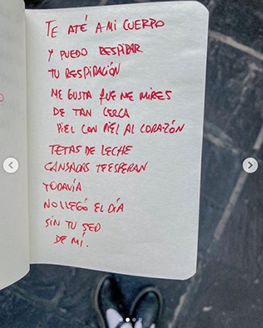 TE ATÉ A MI CUERPO
Y PUEDO RESPIRAR
TU RESPIRACIÓN
ME GUSTA QUE ME MIRES
DE TAN CERCA
PIEL CON PIEL AL CORAZÓN
TETAS DE LECHE
CANSADAS TE ESPERAN
TODAVÍA
NO LLEGÓ EL DÍA
SIN TU SED
DE MÍ.